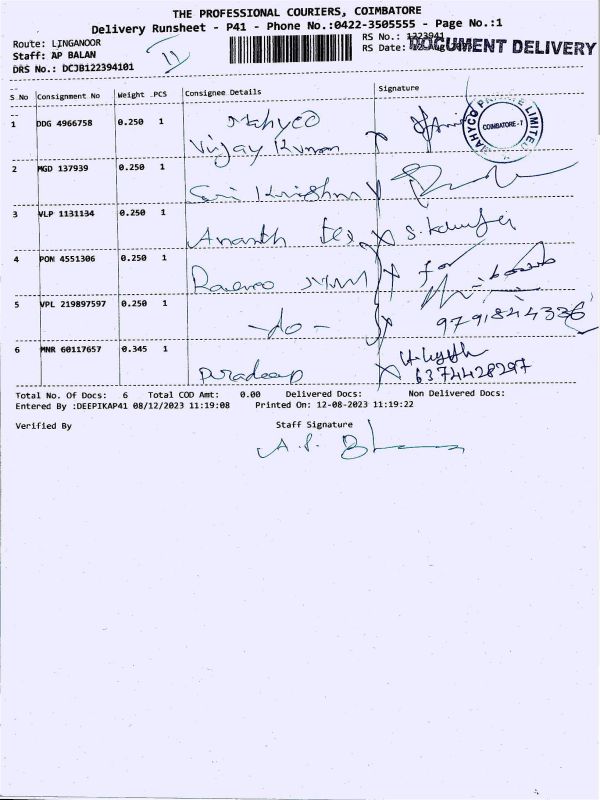 THE PROFESSIONAL COURIERS, COIMBATORE
Delivery Runsheet - P41 - Phone No.:0422-3505555 - Page No.:1
Route: LINGANOOR
RS No.: 1223941
Staff: AP BALAN
RS Date:
DOCUMENT DELIVERY
DRS No.: DCJB122394101
11
S No Consignment No Weight PCS Consignee Details Signature
1 DDG 4966758 0.250 1 Mahyco
MAHYCO PRIVATE LIMITED
COIMBATORE - 7
Vijay Kumar
2 MGD 137939 0.250 1
Sri Krishna
3 VLP 1131134 0.250 1
Ananth Tex
4 PON 4551306 0.250 1
for
5 VPL 219897597 0.250 1
- do -
9791844336
6 MNR 60117657 0.345 1
Pradeep
6374428297
Total No. Of Docs: 6 Total COD Amt: 0.00 Delivered Docs: Non Delivered Docs:
Entered By :DEEPIKAP41 08/12/2023 11:19:08 Printed On: 12-08-2023 11:19:22
Verified By Staff Signature